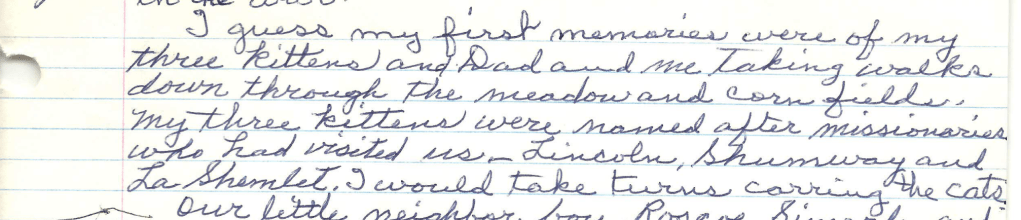 in the
I guess my first memories were of my
three kittens and Dad and me taking walks
down through the meadow and corn fields.
My three kittens were named after missionaries
who had visited us – Lincoln, Shumway and
La Shemlet. I would take turns carring the cats
Our little neighbor boy Roscoe